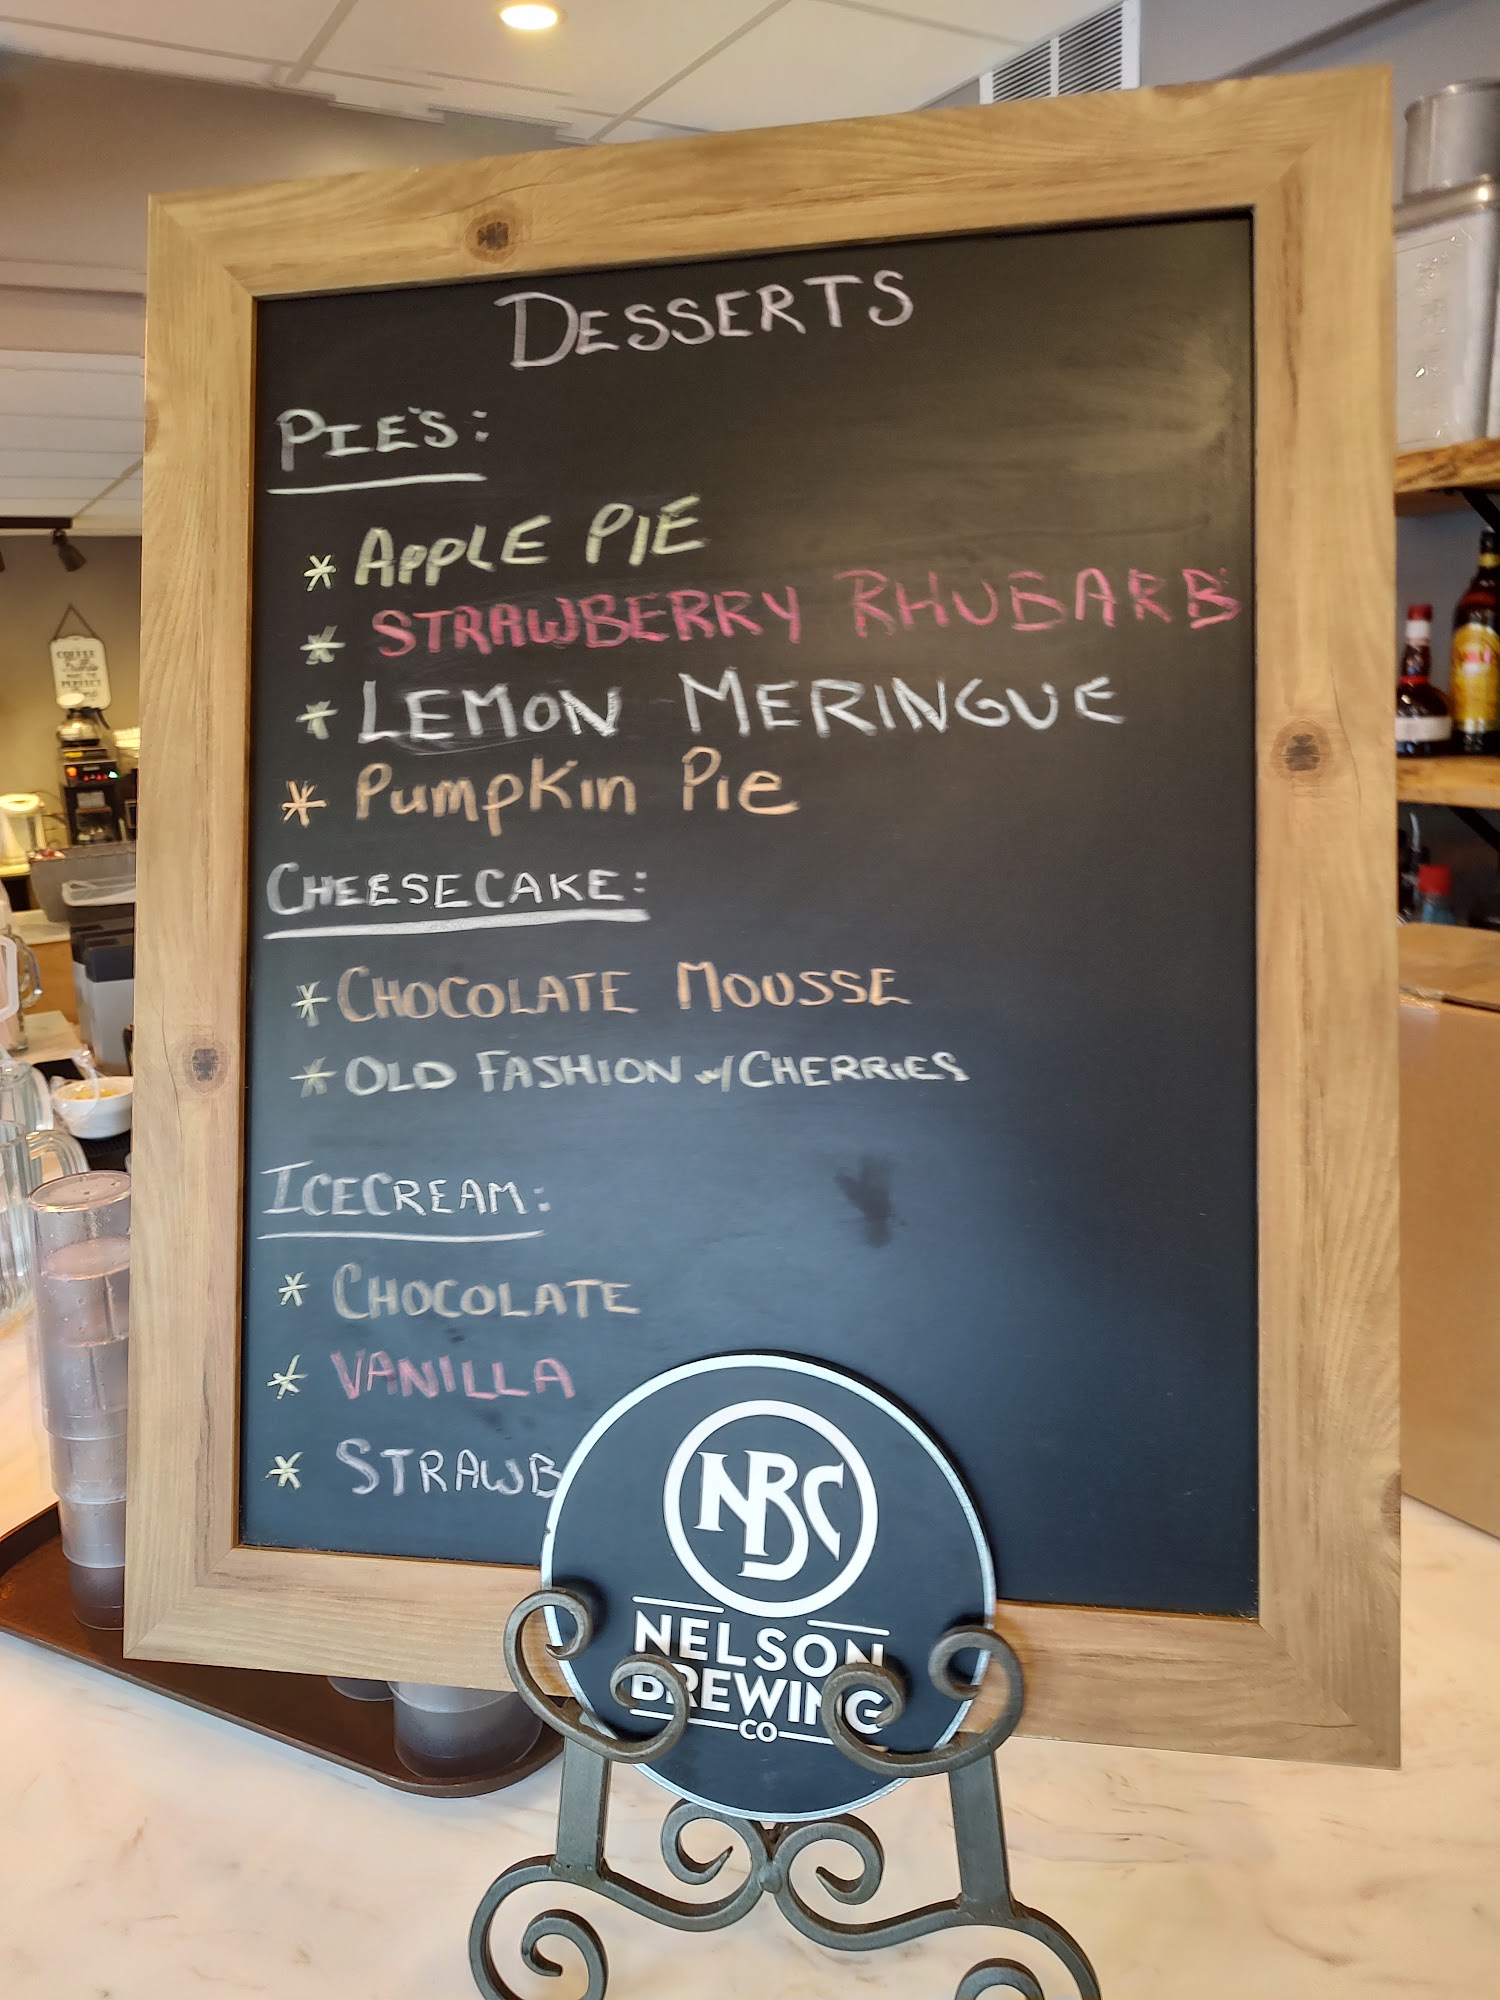 DESSERTS
PIE'S:
* APPLE PIE
* STRAWBERRY RHUBARB
* LEMON MERINGUE
* Pumpkin Pie
CHEESECAKE:
* CHOCOLATE MOUSSE
* OLD FASHION w/CHERRIES
ICECREAM:
* CHOCOLATE
* VANILLA
* STRAWB
NBC
NELSON
BREWING
CO
COFFEE
PERFECT